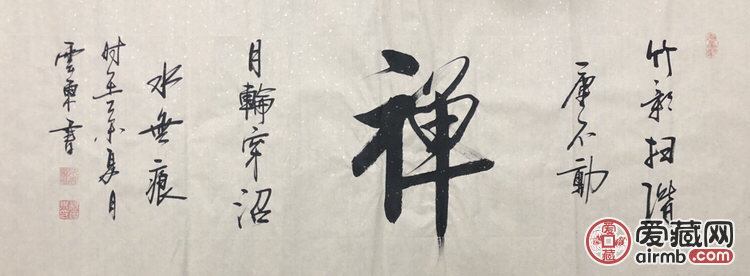 竹影扫階
塵不動
禅
月輪穿沼
水無痕
时在乙未夏月
雲東書
爱藏
爱藏网
airmb.com